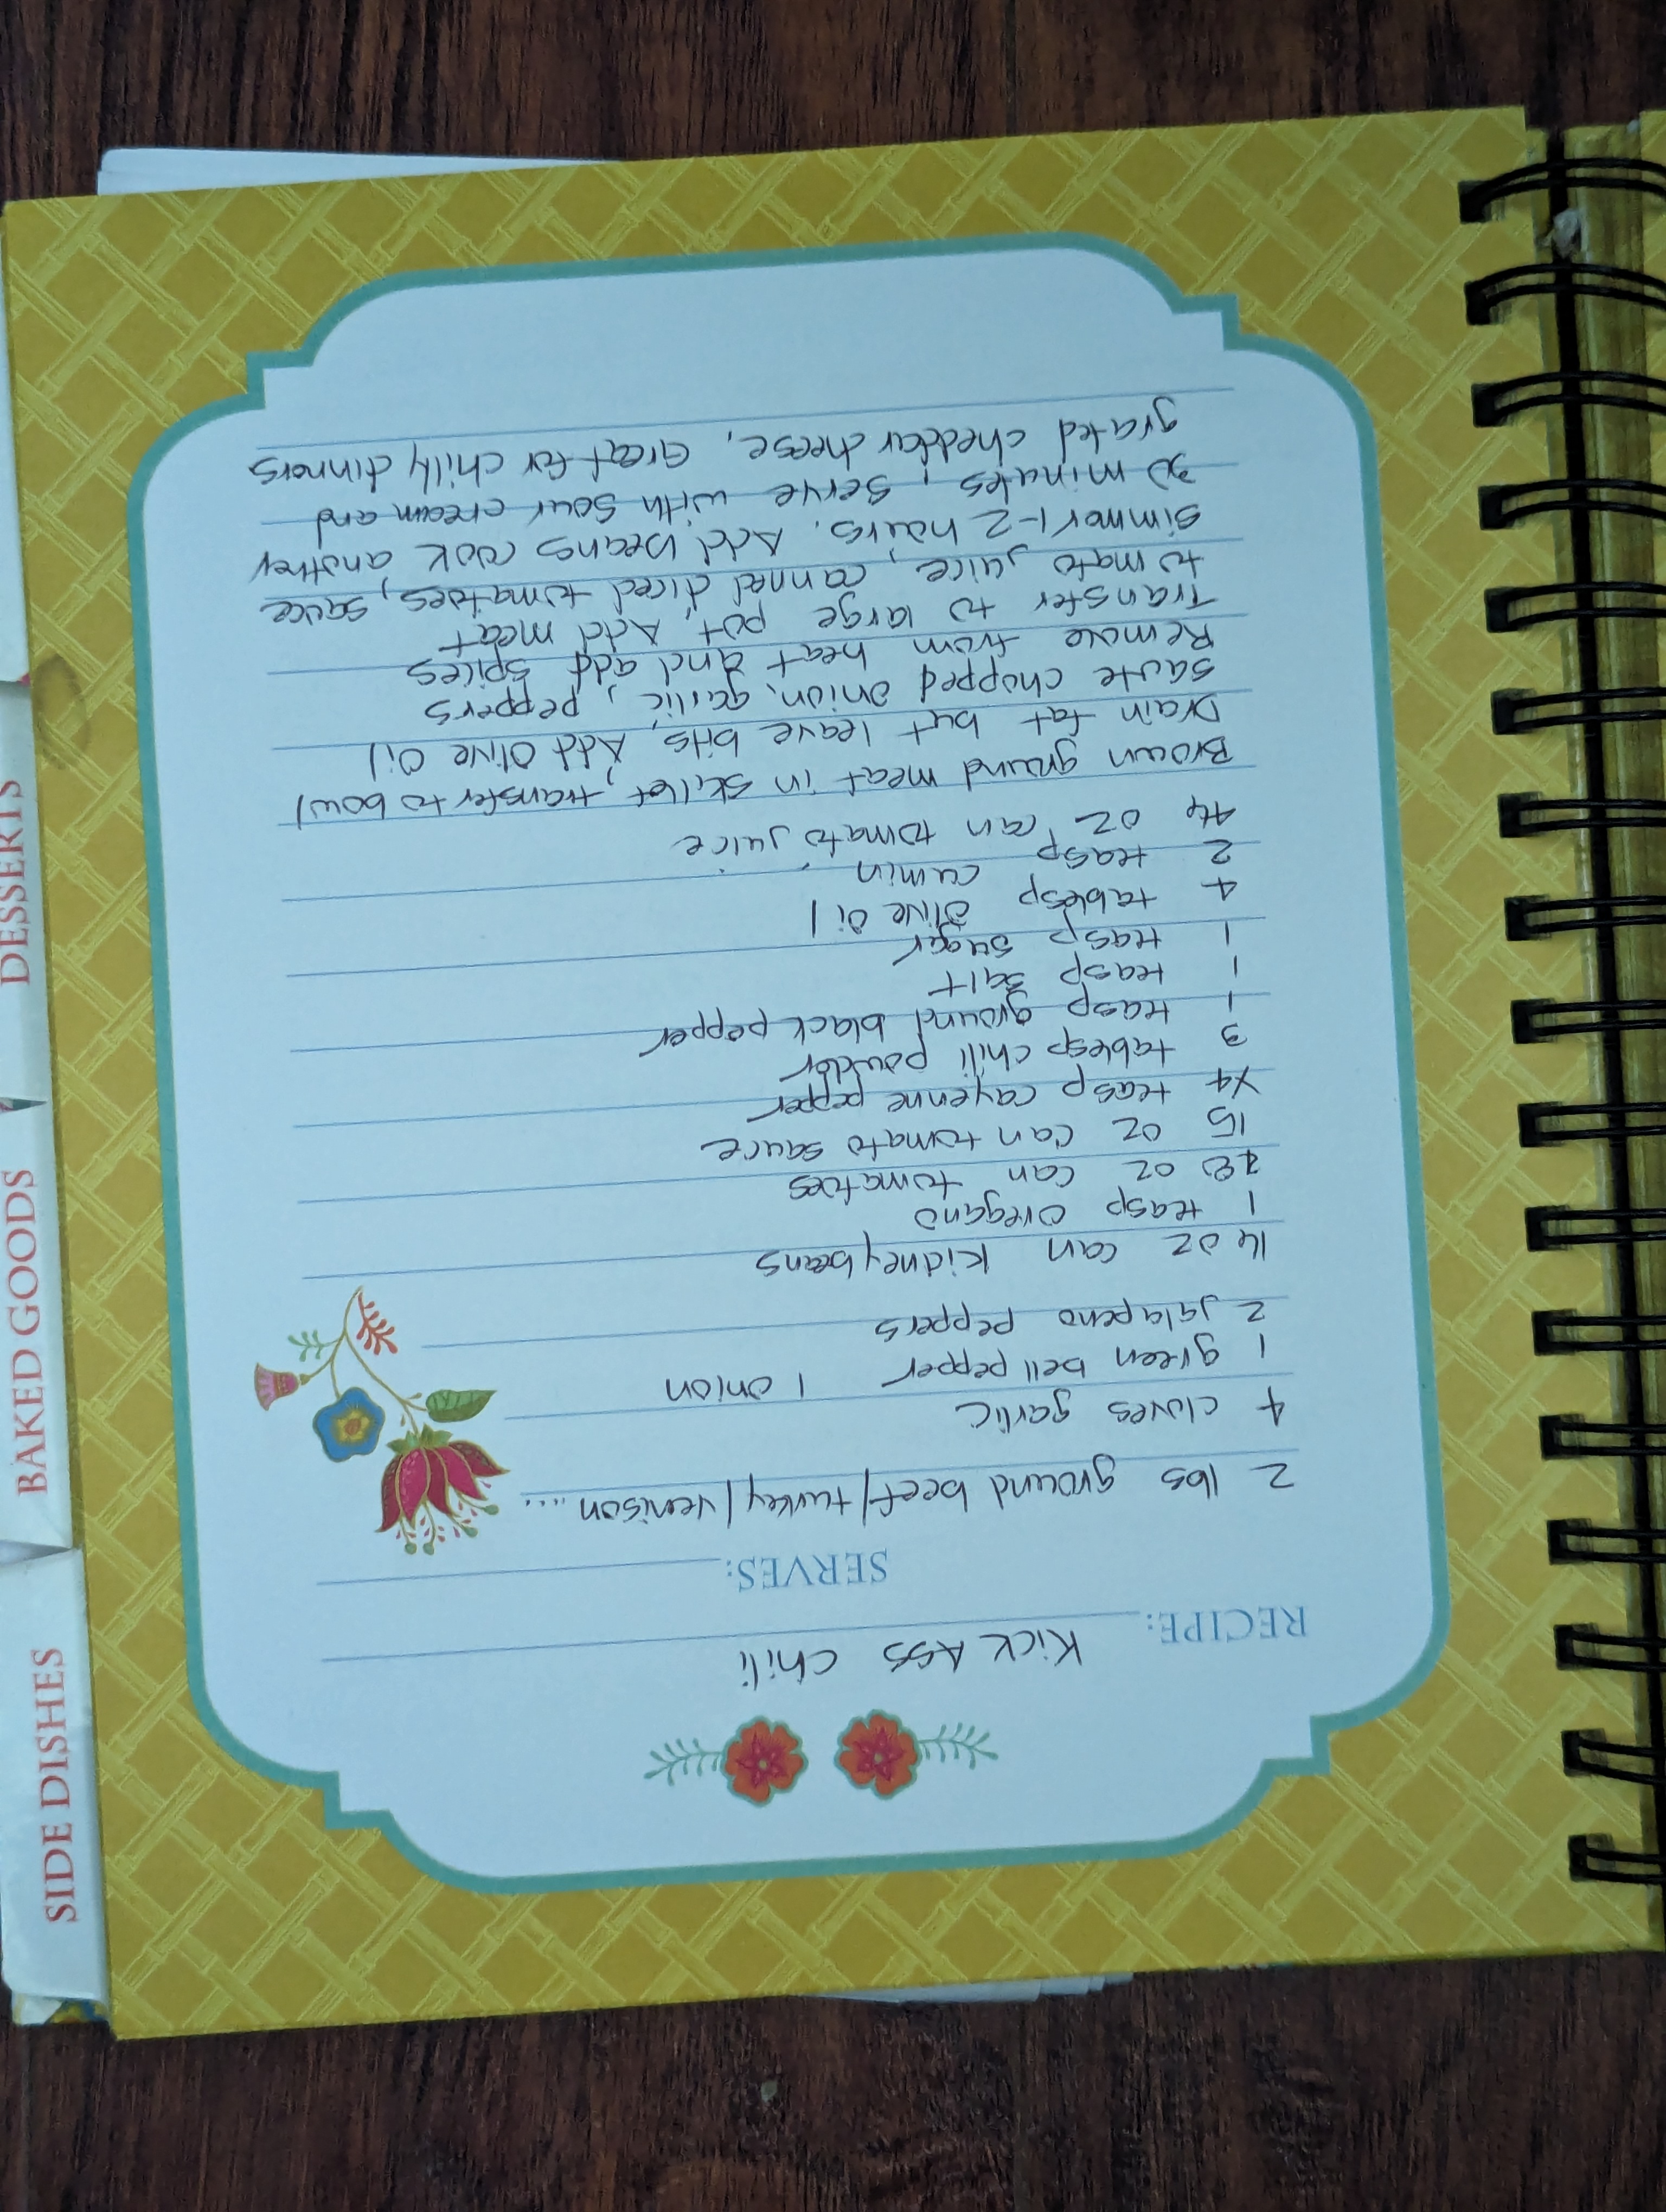 RECIPE: Kick Ass chili
SERVES:
2 lbs ground beef/turkey/venison....
4 cloves garlic
1 green bell pepper 1 onion
2 jalapeno peppers
16 oz can kidney beans
1 teasp oregano
28 oz can tomatoes
15 oz can tomato sauce
1/4 teasp cayenne pepper
3 tablesp chili powder
1 teasp ground black pepper
1 teasp salt
1 teasp sugar
4 tablesp olive oil
2 teasp cumin
46 oz can tomato juice
Brown ground meat in skillet, transfer to bowl
Drain fat but leave bits, Add olive oil
saute chopped onion, garlic, peppers
Remove from heat and add spices
Transfer to large pot, Add meat
tomato juice, canned diced tomatoes, sauce
simmer 1-2 hours. Add beans cook another
30 minutes, serve with sour cream and
grated cheddar cheese, Great for chilly dinners
SIDE DISHES
BAKED GOODS
DESSERTS